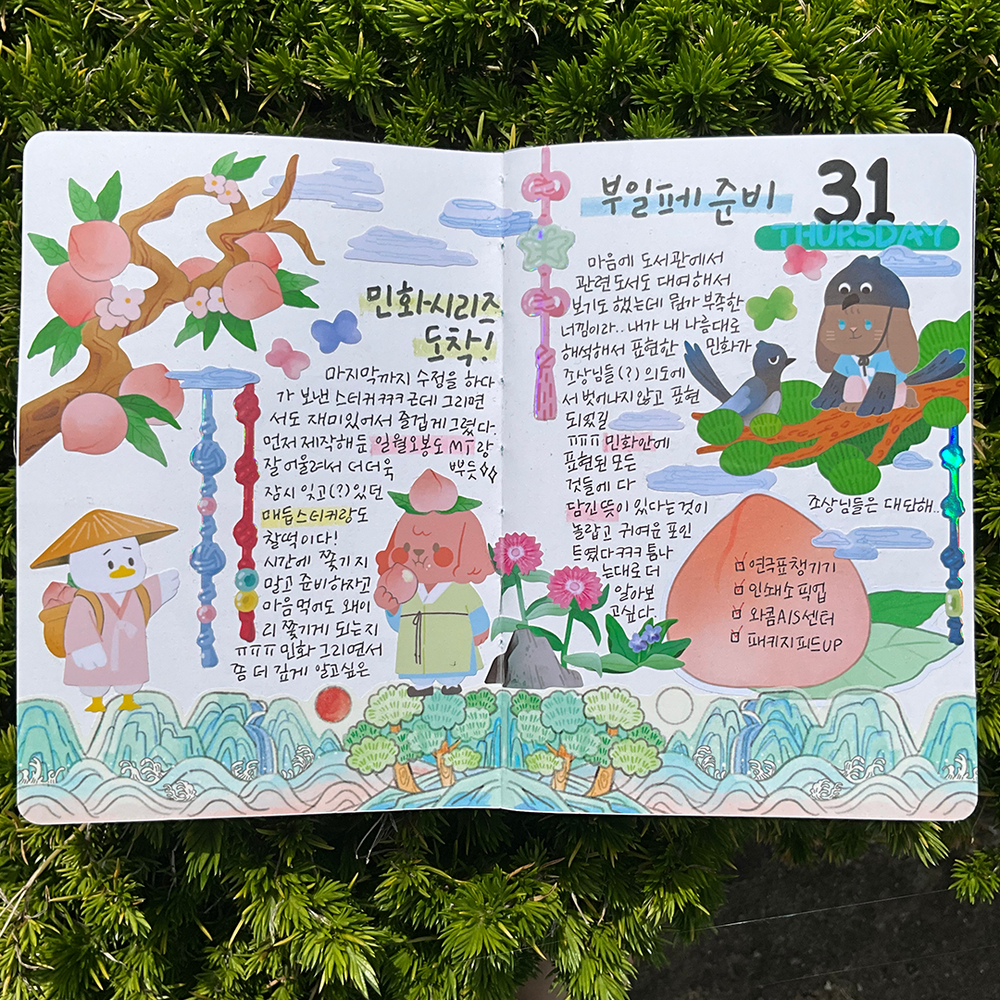 민화시리즈
도착!
마지막까지 수정을 하다
가 보낸 스티커ㅋㅋㅋ 근데 그리면
서도 재미있어서 즐겁게 그렸다.
먼저 제작해둔 일월오봉도 MT랑
잘 어울려서 더더욱 뿌듯
잠시 잊고(?)있던
매듭스티커랑도
찰떡이다!
시간에 쫓기지
말고 준비하자고
마음먹어도 왜이
리 쫓기게 되는지
ㅠㅠㅠ 민화 그리면서
좀 더 깊게 알고싶은
부일페 준비
31
THURSDAY
마음에 도서관에서
관련도서도 대여해서
보기도 했는데 뭔가 부족한
너낌이라.. 내가 내 나름대로
해석해서 표현한 민화가
조상님들(?) 의도에
서 벗어나지 않고 표현
되었길
ㅠㅠㅠ 민화안에
표현된 모든
것들에 다
담긴 뜻이 있다는것이
놀랍고 귀여운 포인
트였다ㅋㅋㅋ 틈나
는대로 더
알아보
고싶다.
조상님들은 대단해..
연국표챙기기
인쇄소 픽업
와콤AIS센터
패키지피드UP